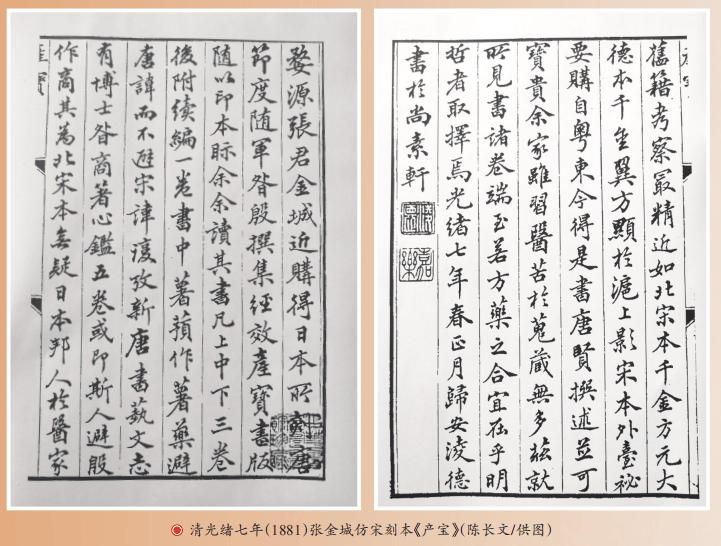 婺源張君金城近購得日本所刻唐
節度随軍昝殷撰集經效產寶書版
随以印本眎余余讀其書凡上中下三卷
後附續編一卷書中薯蕷作薯藥避
唐諱而不避宋諱復攷新唐書藝文志
有博士昝商著心鑑五卷或即斯人避殷
作商其為北宋本無疑日本邦人於醫家
產寶
舊籍考察冣精近如北宋本千金方元大
德本千金翼方顯於滬上影宋本外臺祕
要購自粤東今得是書唐賢撰述並可
寶貴余家雖習醫苦於蒐蔵無多茲就
所見書諸卷端至若方藥之合宜在乎明
哲者取擇焉光緒七年春正月歸安淩德
書於尚素軒
清光绪七年(1881)张金城仿宋刻本《产宝》(陈长文/供图)